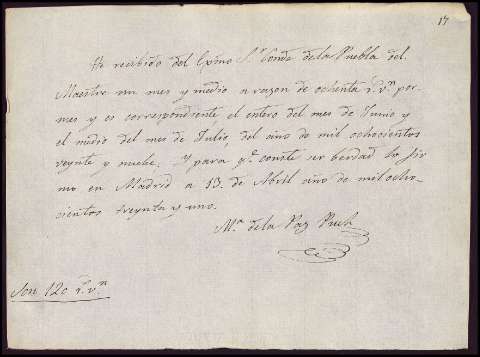 17
He recibido del Exmo Sr. Conde de la Puebla del
Maestre un mes y medio a razon de ochenta r.s v.n por
mes y es correspondiente el entero del mes de Junio y
el medio del mes de Julio, del año de mil ochocientos
veynte y nuebe. Y para q.e conste ser berdad lo fir
mo en Madrid a 13 de Abril año de mil ocho-
cientos treynta y uno.
M.a de la Paz Puch
Son 120 r.s v.n